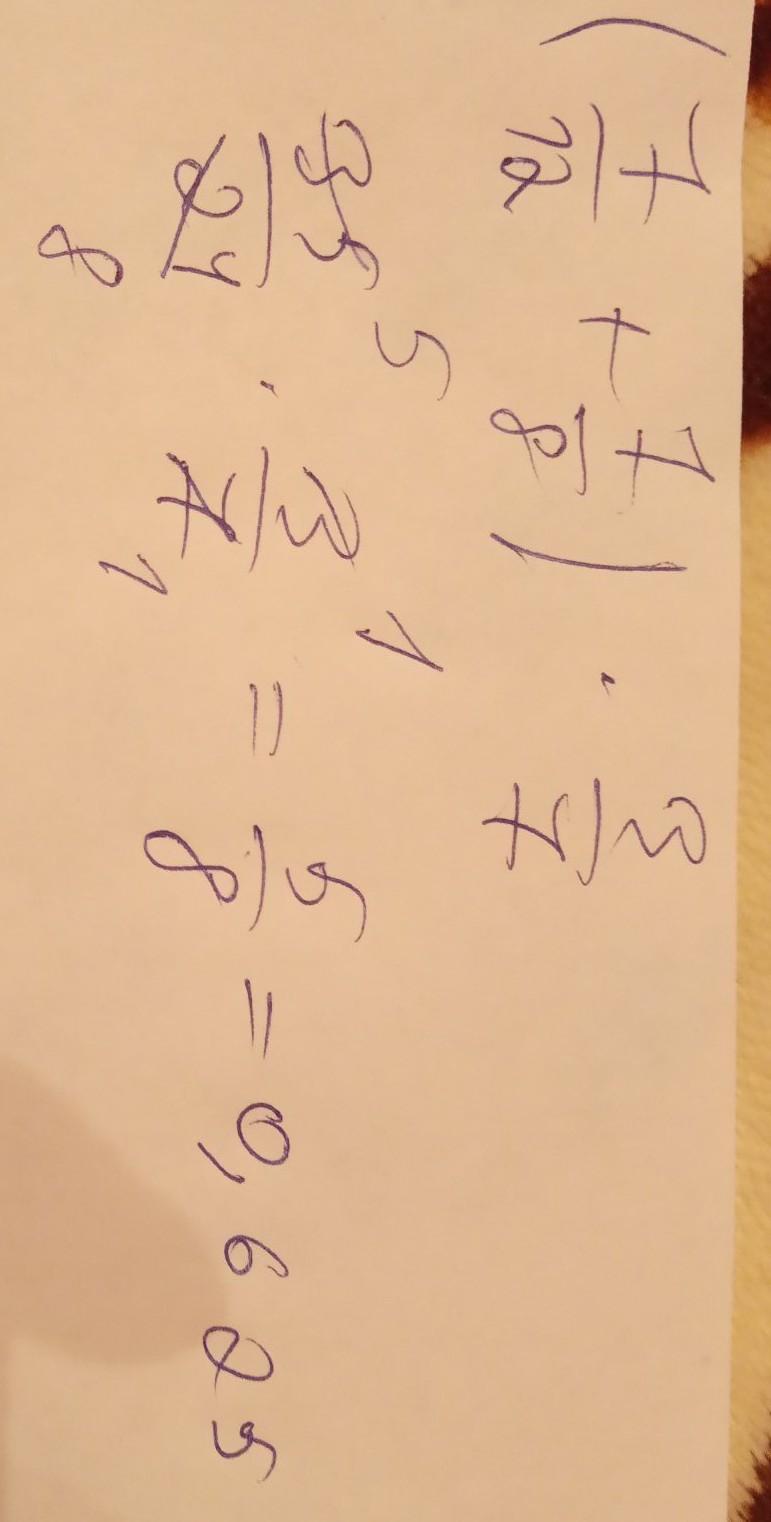 (7/12 + 7/8) · 3/7
35/24 5 8 · 3/7 1 1 = 5/8 = 0,625